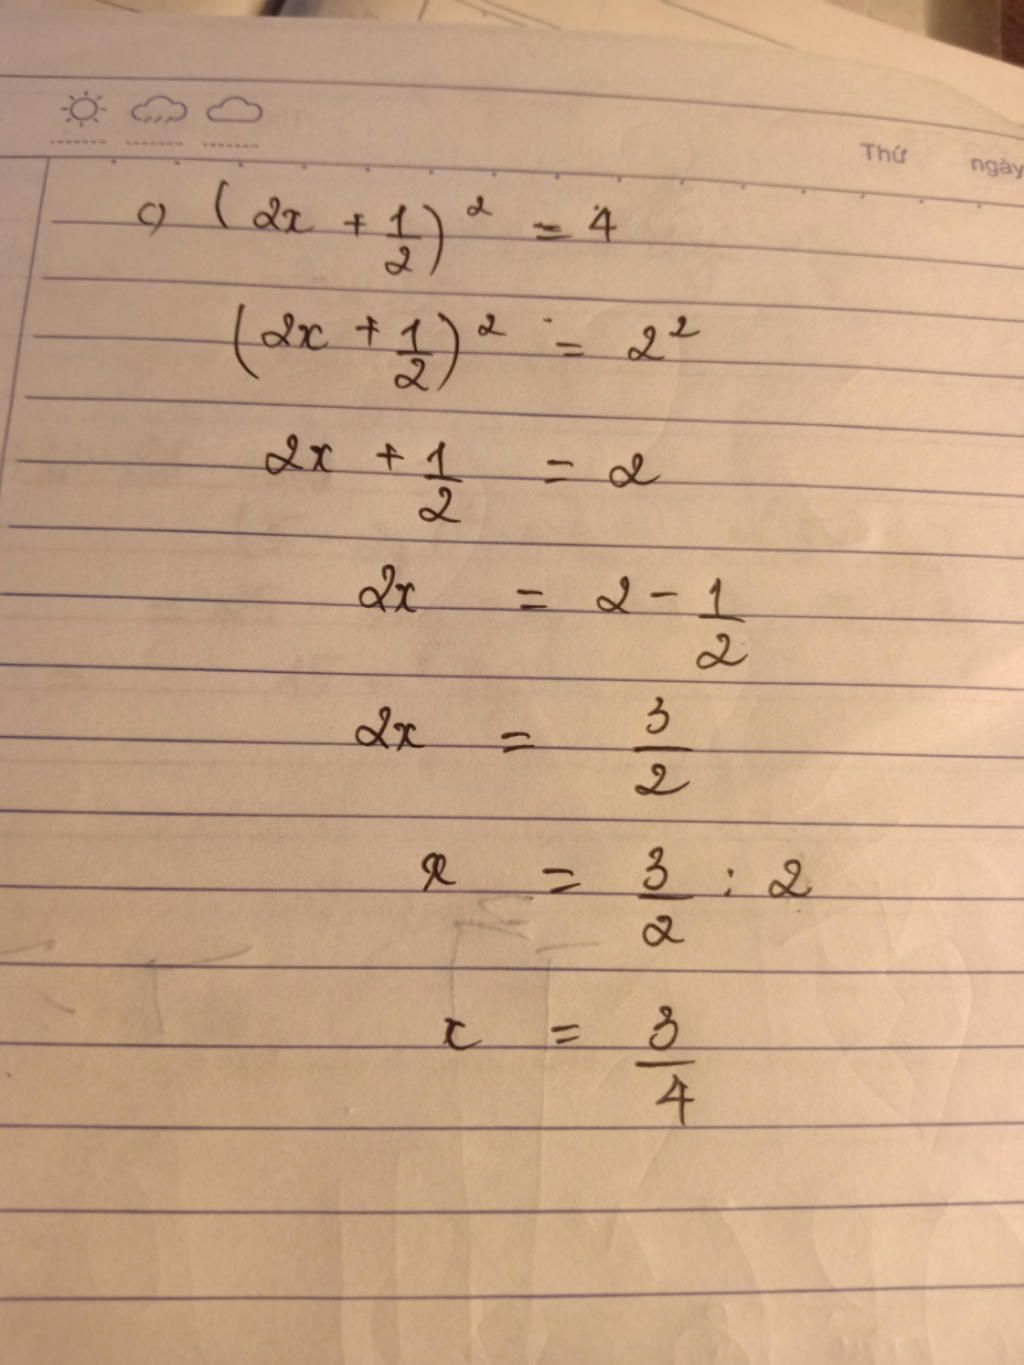 Thứ ngày
c) (2x + 1/2)² = 4
(2x + 1/2)² = 2²
2x + 1/2 = 2
2x = 2 - 1/2
2x = 3/2
x = 3/2 : 2
x = 3/4